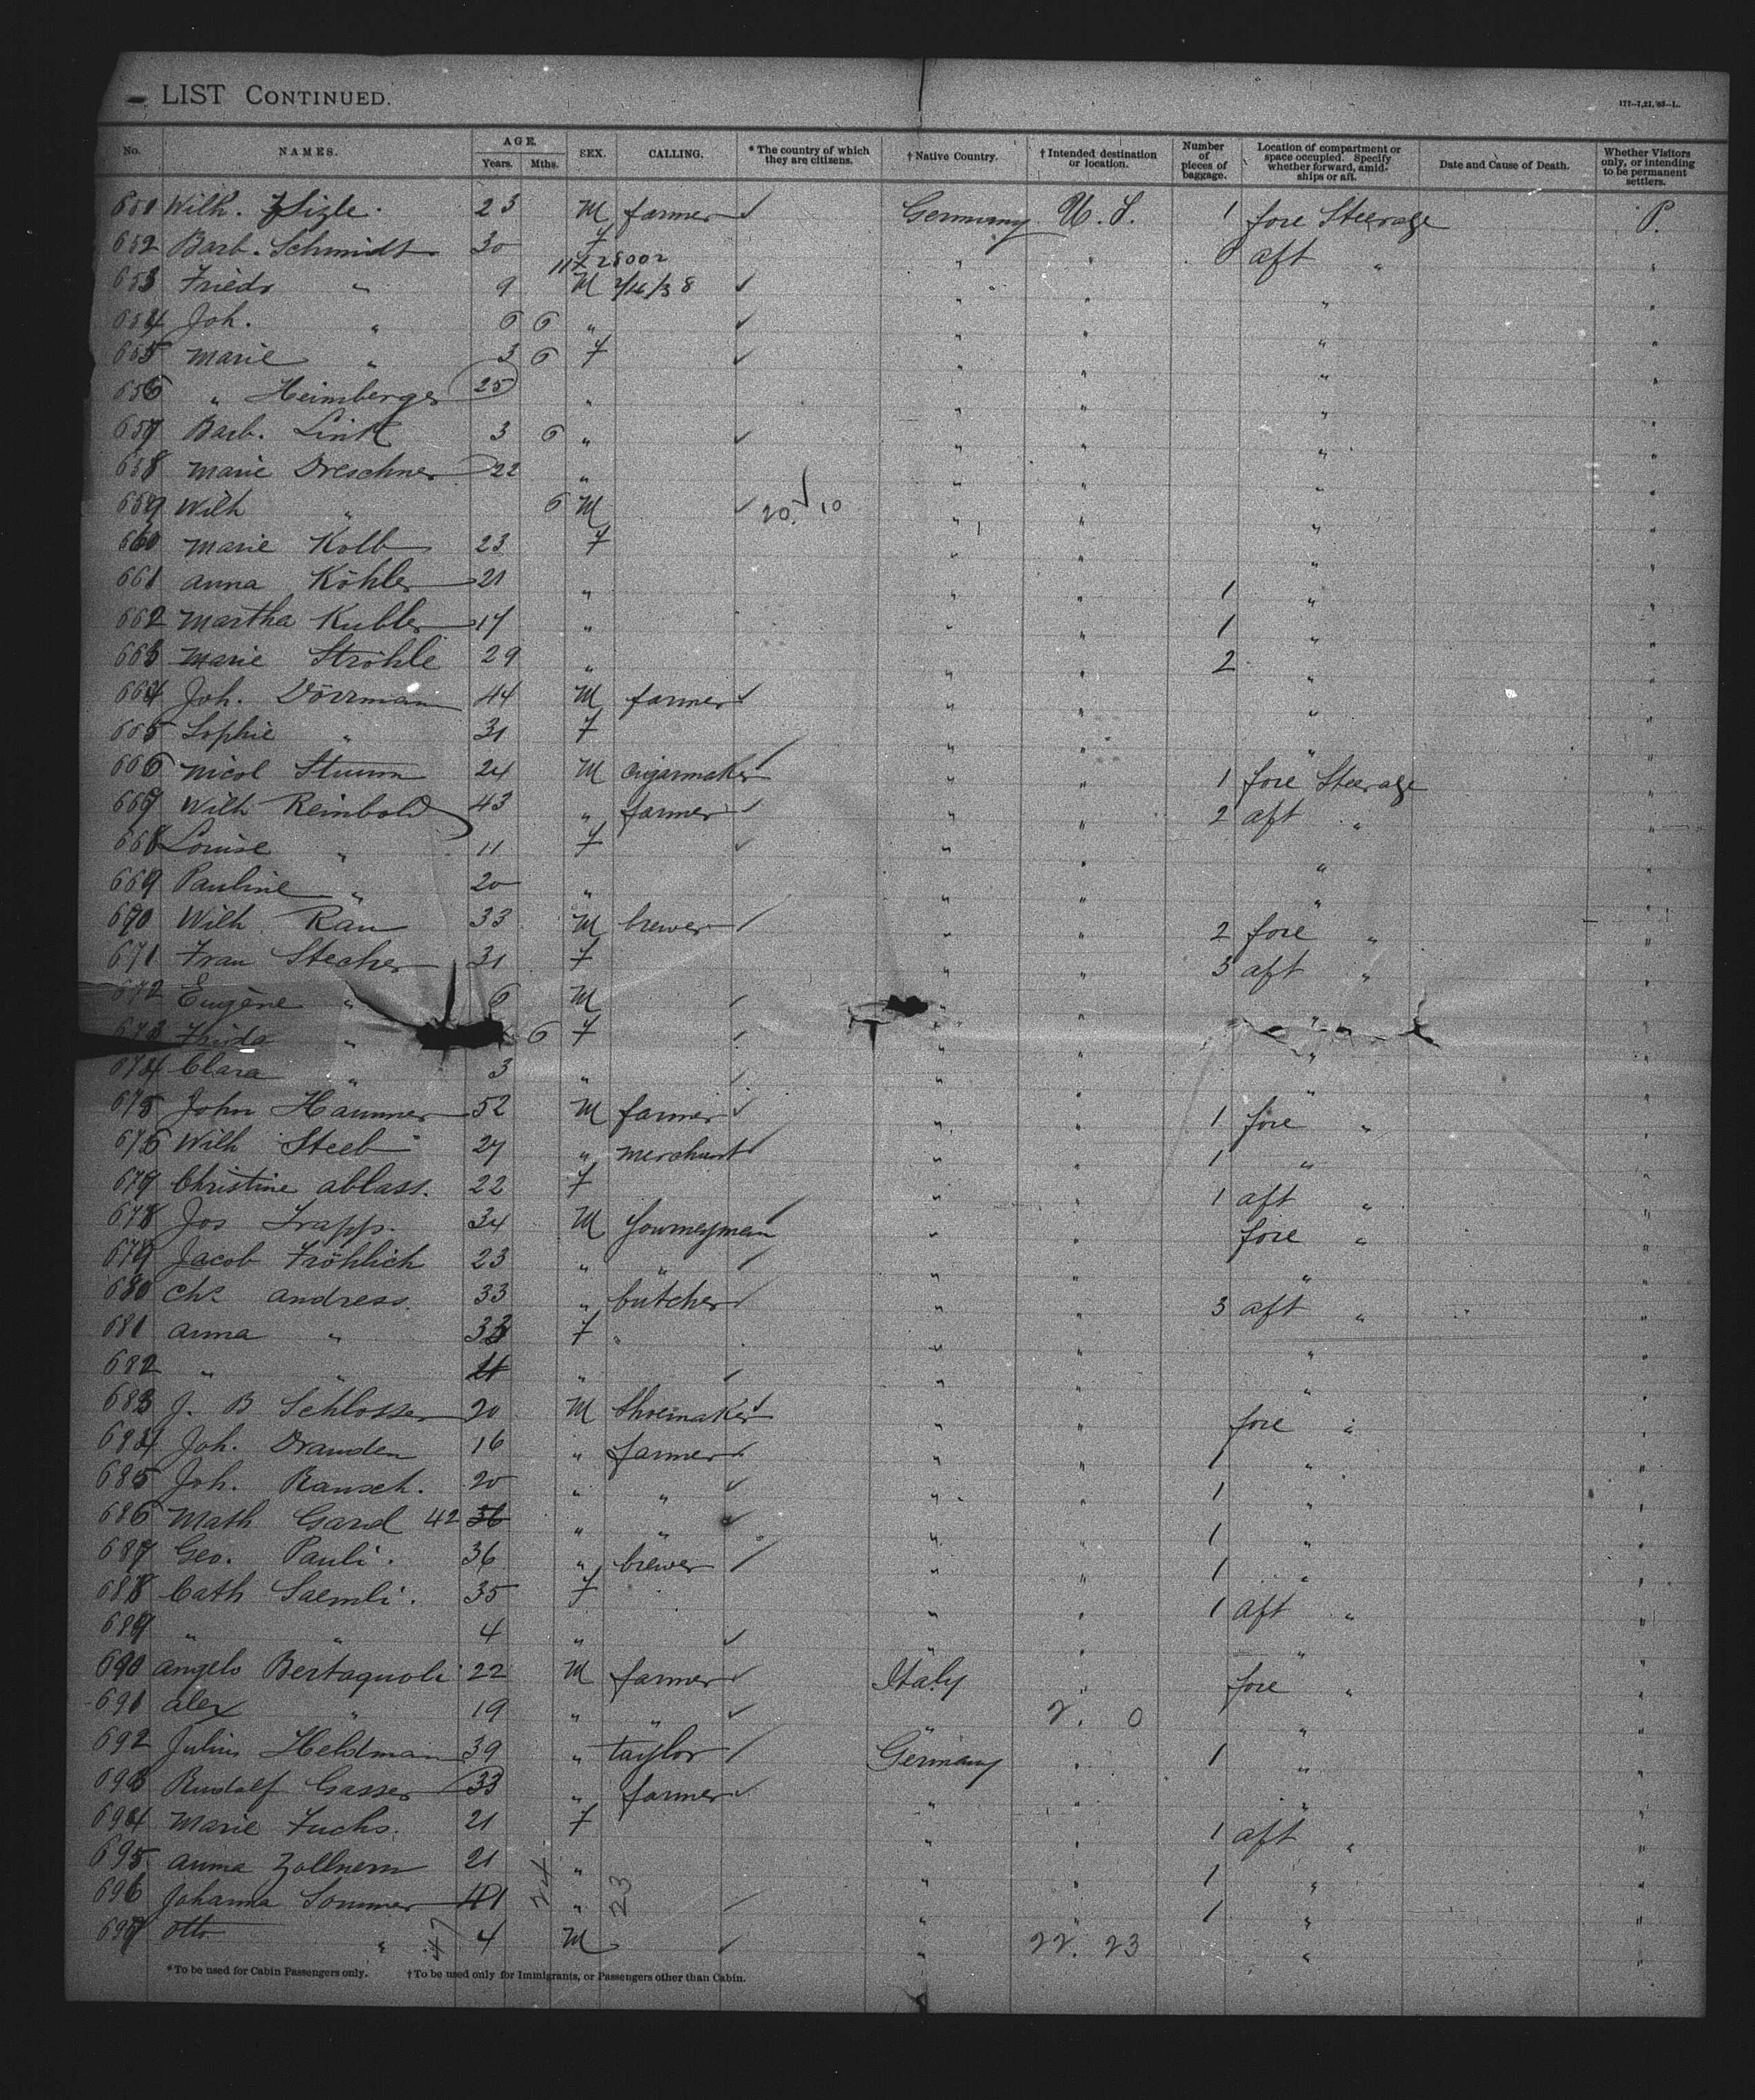 LIST CONTINUED.
177--7,21,'83--L.
No. NAMES. AGE. Years. Mths. SEX. CALLING. * The country of which they are citizens. † Native Country. † Intended destination or location. Number of pieces of baggage. Location of compartment or space occupied. Specify whether forward, amidships or aft. Date and Cause of Death. Whether Visitors only, or intending to be permanent settlers.
651 Wilh. Sizle. 23 M farmer ✓ Germany U. S. 1 fore Steerage P.
652 Barb. Schmidt 30 f " " 6 aft " "
117 28002
653 Friedr " 9 M 7/16/38 ✓ " " " "
654 Joh. " 6 6 " ✓ " " " "
655 Marie " 3 6 f ✓ " " " "
656 " Heimberger 25 " " " " "
657 Barb. Link 3 6 " ✓ " " " "
658 Marie Dreschner 22 " " " " "
659 Wilh " 6 M ✓ 20. ✓ 10 " " " "
660 Marie Kolb 23 f " " " "
661 Anna Köhler 21 " " " 1 " "
662 Martha Kubler 17 " " " 1 " "
663 Marie Ströhle 29 " " " 2 " "
664 Joh. Dörrman 44 M farmer ✓ " " " "
665 Sophie " 31 f " " " "
666 Nicol Stumm 24 M Cigarmaker ✓ " " 1 fore Steerage "
667 Wilh Reinbold 43 " farmer ✓ " " 2 aft " "
668 Louise " 11 f ✓ " " " "
669 Pauline " 20 " " " " "
670 Wilh Rau 33 M brewer ✓ " " 2 fore " "
671 Frau Stecher 31 f " " 3 aft " "
672 Eugène " 6 M ✓ " " " "
673 Frida " 6 f ✓ " " " "
674 Clara " 3 " ✓ " " " "
675 John Hammer 52 M farmer ✓ " " 1 fore " "
676 Wilh Steeb 27 " merchant ✓ " " 1 " "
677 Christine Ablass. 22 f " " 1 aft " "
678 Jos Trapp. 34 M Journeyman ✓ " " fore " "
679 Jacob Fröhlich 23 " " ✓ " " " "
680 Chs Andress. 33 " butcher ✓ " " 3 aft " "
681 Anna " 33 f " " " " "
682 " " 11 " ✓ " " " "
683 J. B Schlosser 20 M Shoemaker ✓ " " fore " "
684 Joh. Drauden 16 " farmer ✓ " " 1 " "
685 Joh. Rausch. 20 " " ✓ " " 1 " "
686 Math Gard 42 36 " " ✓ " " 1 " "
687 Geo. Pauli. 36 " brewer ✓ " " 1 " "
688 Cath Saemli. 35 f " " 1 aft " "
689 " " 4 " ✓ " " " "
690 Angelo Bertagnoli 22 M farmer ✓ Italy " fore " "
691 Alex " 19 " " ✓ " 2. 0 " "
692 Julius Heldman 39 " taylor ✓ Germany " 1 " "
693 Rudolf Gasser 33 " farmer ✓ " " " "
694 Marie Fuchs. 21 f " " 1 aft " "
695 Anna Zollnern 21 " " " 1 " "
696 Johanna Sommer 24 " 23 ✓ " " 1 " "
697 Otto " 47 4 M ✓ " 22. 23 " "
* To be used for Cabin Passengers only. † To be used only for Immigrants, or Passengers other than Cabin.